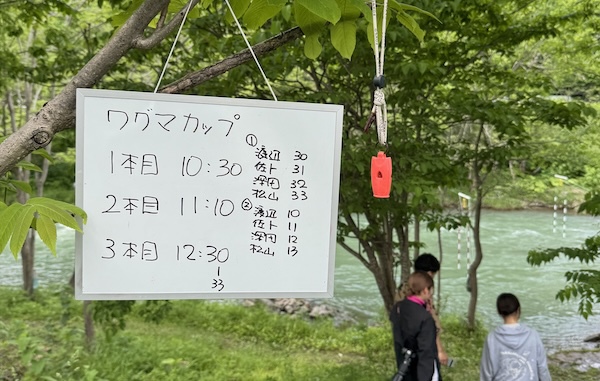 ワグマカップ
1本目 10:30
2本目 11:10
3本目 12:30
|
33
①
渡辺 30
佐ト 31
深田 32
松山 33
②
渡辺 10
佐ト 11
深田 12
松山 13